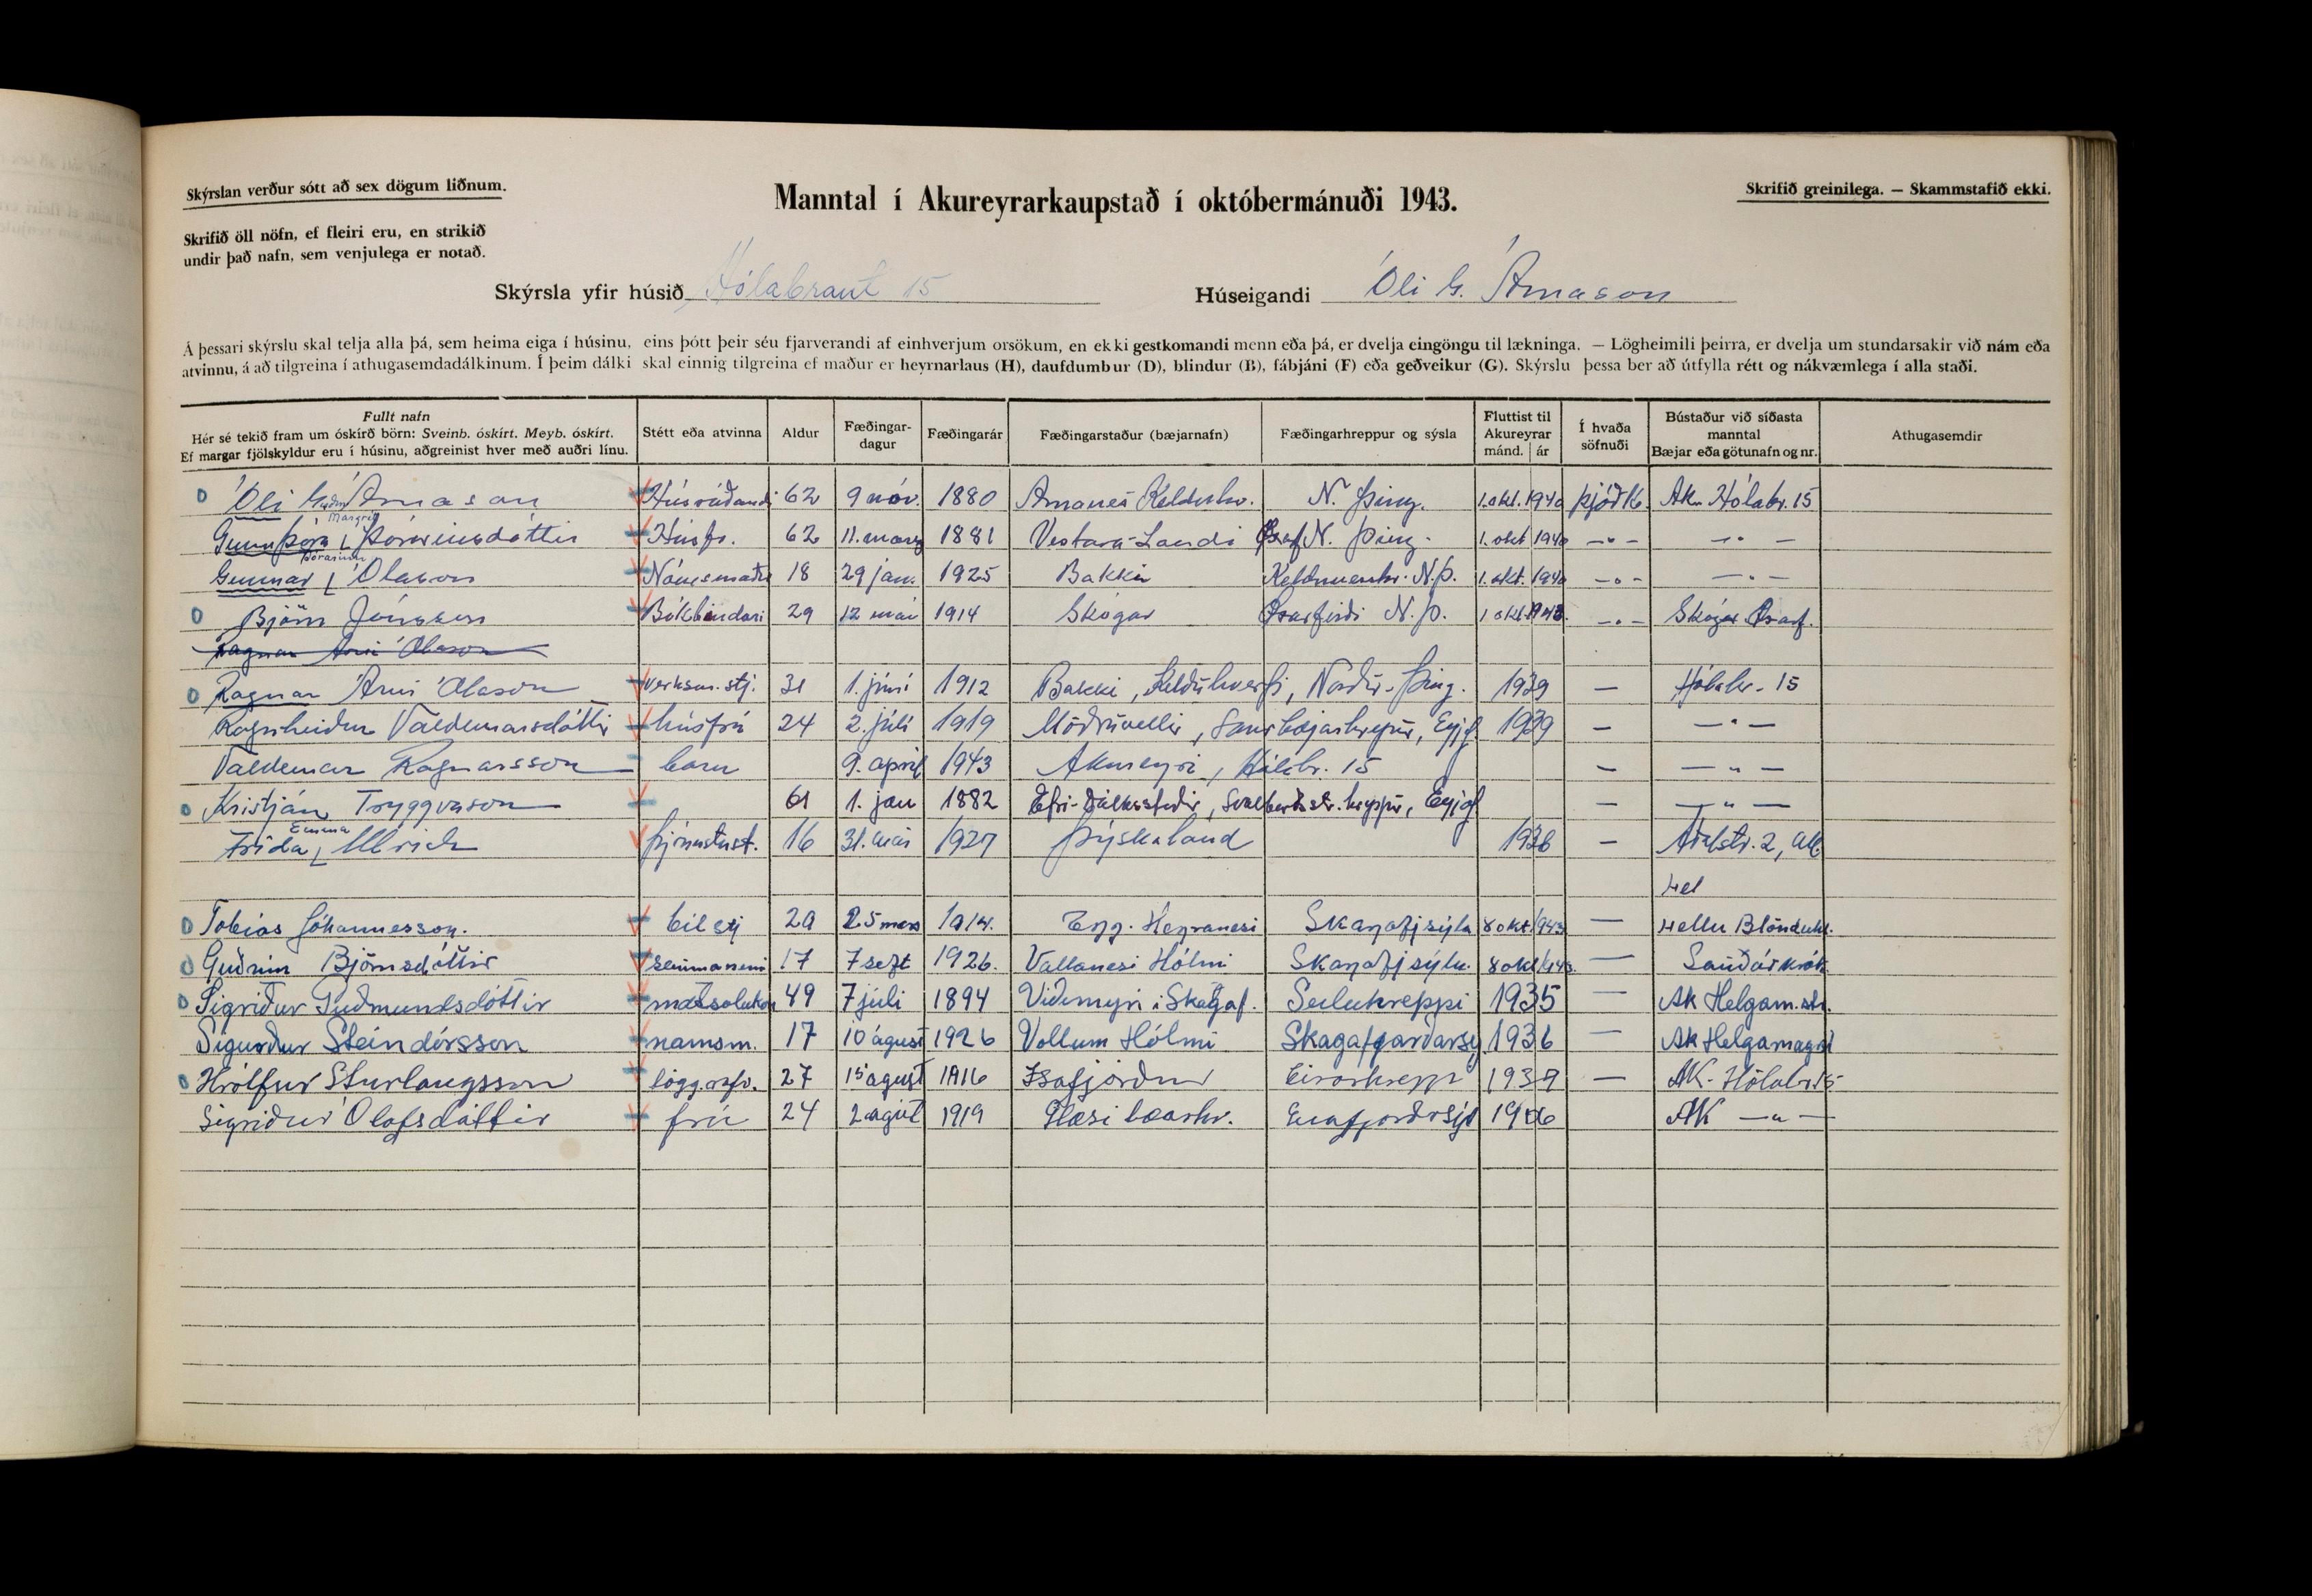 Skýrslan verður sótt að sex dögum liðnum.
Manntal í Akureyrarkaupstað í októbermánuði 1943.
Skrifið greinilega. — Skammstafið ekki.
Skrifið öll nöfn, ef fleiri eru, en strikið
undir það nafn, sem venjulega er notað.
Skýrsla yfir húsið Hólabraut 15 Húseigandi Óli G. Árnason
Á þessari skýrslu skal telja alla þá, sem heima eiga í húsinu, eins þótt þeir séu fjarverandi af einhverjum orsökum, en ekki gestkomandi menn eða þá, er dvelja eingöngu til lækninga. — Lögheimili þeirra, er dvelja um stundarsakir við nám eða
atvinnu, á að tilgreina í athugasemdadálkinum. Í þeim dálki skal einnig tilgreina ef maður er heyrnarlaus (H), daufdumbur (D), blindur (B), fábjáni (F) eða geðveikur (G). Skýrslu þessa ber að útfylla rétt og nákvæmlega í alla staði.
Fullt nafn
Hér sé tekið fram um óskírð börn: Sveinb. óskírt. Meyb. óskírt.
Ef margar fjölskyldur eru í húsinu, aðgreinist hver með auðri línu.
Stétt eða atvinna
Aldur
Fæðingar-
dagur
Fæðingarár
Fæðingarstaður (bæjarnafn)
Fæðingarhreppur og sýsla
Fluttist til
Akureyrar
mánd. ár
Í hvaða
söfnuði
Bústaður við síðasta
manntal
Bæjar eða götunafn og nr.
Athugasemdir
Óli Árnason Húsráðandi 62 9 nóv. 1880 N. Þing. 1. okt. 1940 Þjóðk. Ak. Hólabr. 15
Margrét
Gunnþóra Þórarinsdóttir Húsfr. 62 11. mars 1881 N. Þing. 1. okt 1940 — " — — " —
Þórarinn
Gunnar Ólason Námsmaður 18 29 jan. 1925 Bakki N.Þ. 1. okt. 1940 — " — — " —
Björn Jónsson Bókbindari 29 12 maí 1914 Skógar N. Þ. 1 okt. 1943. — " — Skógar
Ragnar Árni Ólason
Ragnar Árni Ólason verksm.stj. 31 1. júní 1912 Bakki, Kelduhverfi, Norður-Þing. 1939 — Hólabr. 15
Ragnheiður Valdemarsdóttir húsfrú 24 2. júlí 1919 Möðruvellir, Saurbæjarhreppur, Eyjf. 1939 — — " —
Valdemar Ragnarsson barn 9. apríl 1943 Akureyri, Hólabr. 15 — — " —
Kristján Tryggvason 61 1. jan 1882 — — " —
Emma
Fríða Ullrich þjónustust. 16 31. maí 1927 Þýskaland — Aðalstr. 2, Ak.
Hel
Tobías Jóhannesson. bílstj 29 25 mars 1914. Egg. Hegranesi Skagafj sýslu 8 okt 1943 —
Guðrún Björnsdóttir 17 7 sept 1926. Vallanesi Hólmi Skagafj sýslu. 8 okt 1943. — Sauðárkrók
Sigríður Guðmundsdóttir 49 7 júlí 1894 Víðimýri í Skagaf. Seiluhreppi 1935 — Ak Helgam.str.
Sigurður Steindórsson namsm. 17 10 águst 1926 Vollum Hólmi 1936 — Ak Helgamagr
Hrólfur Sturlaugsson 27 15 agust 1916 Isafjörður 1939 — AK - Hólabr 15
Sigríður Ólafsdóttir frú 24 2 agúst 1919 AK — " —